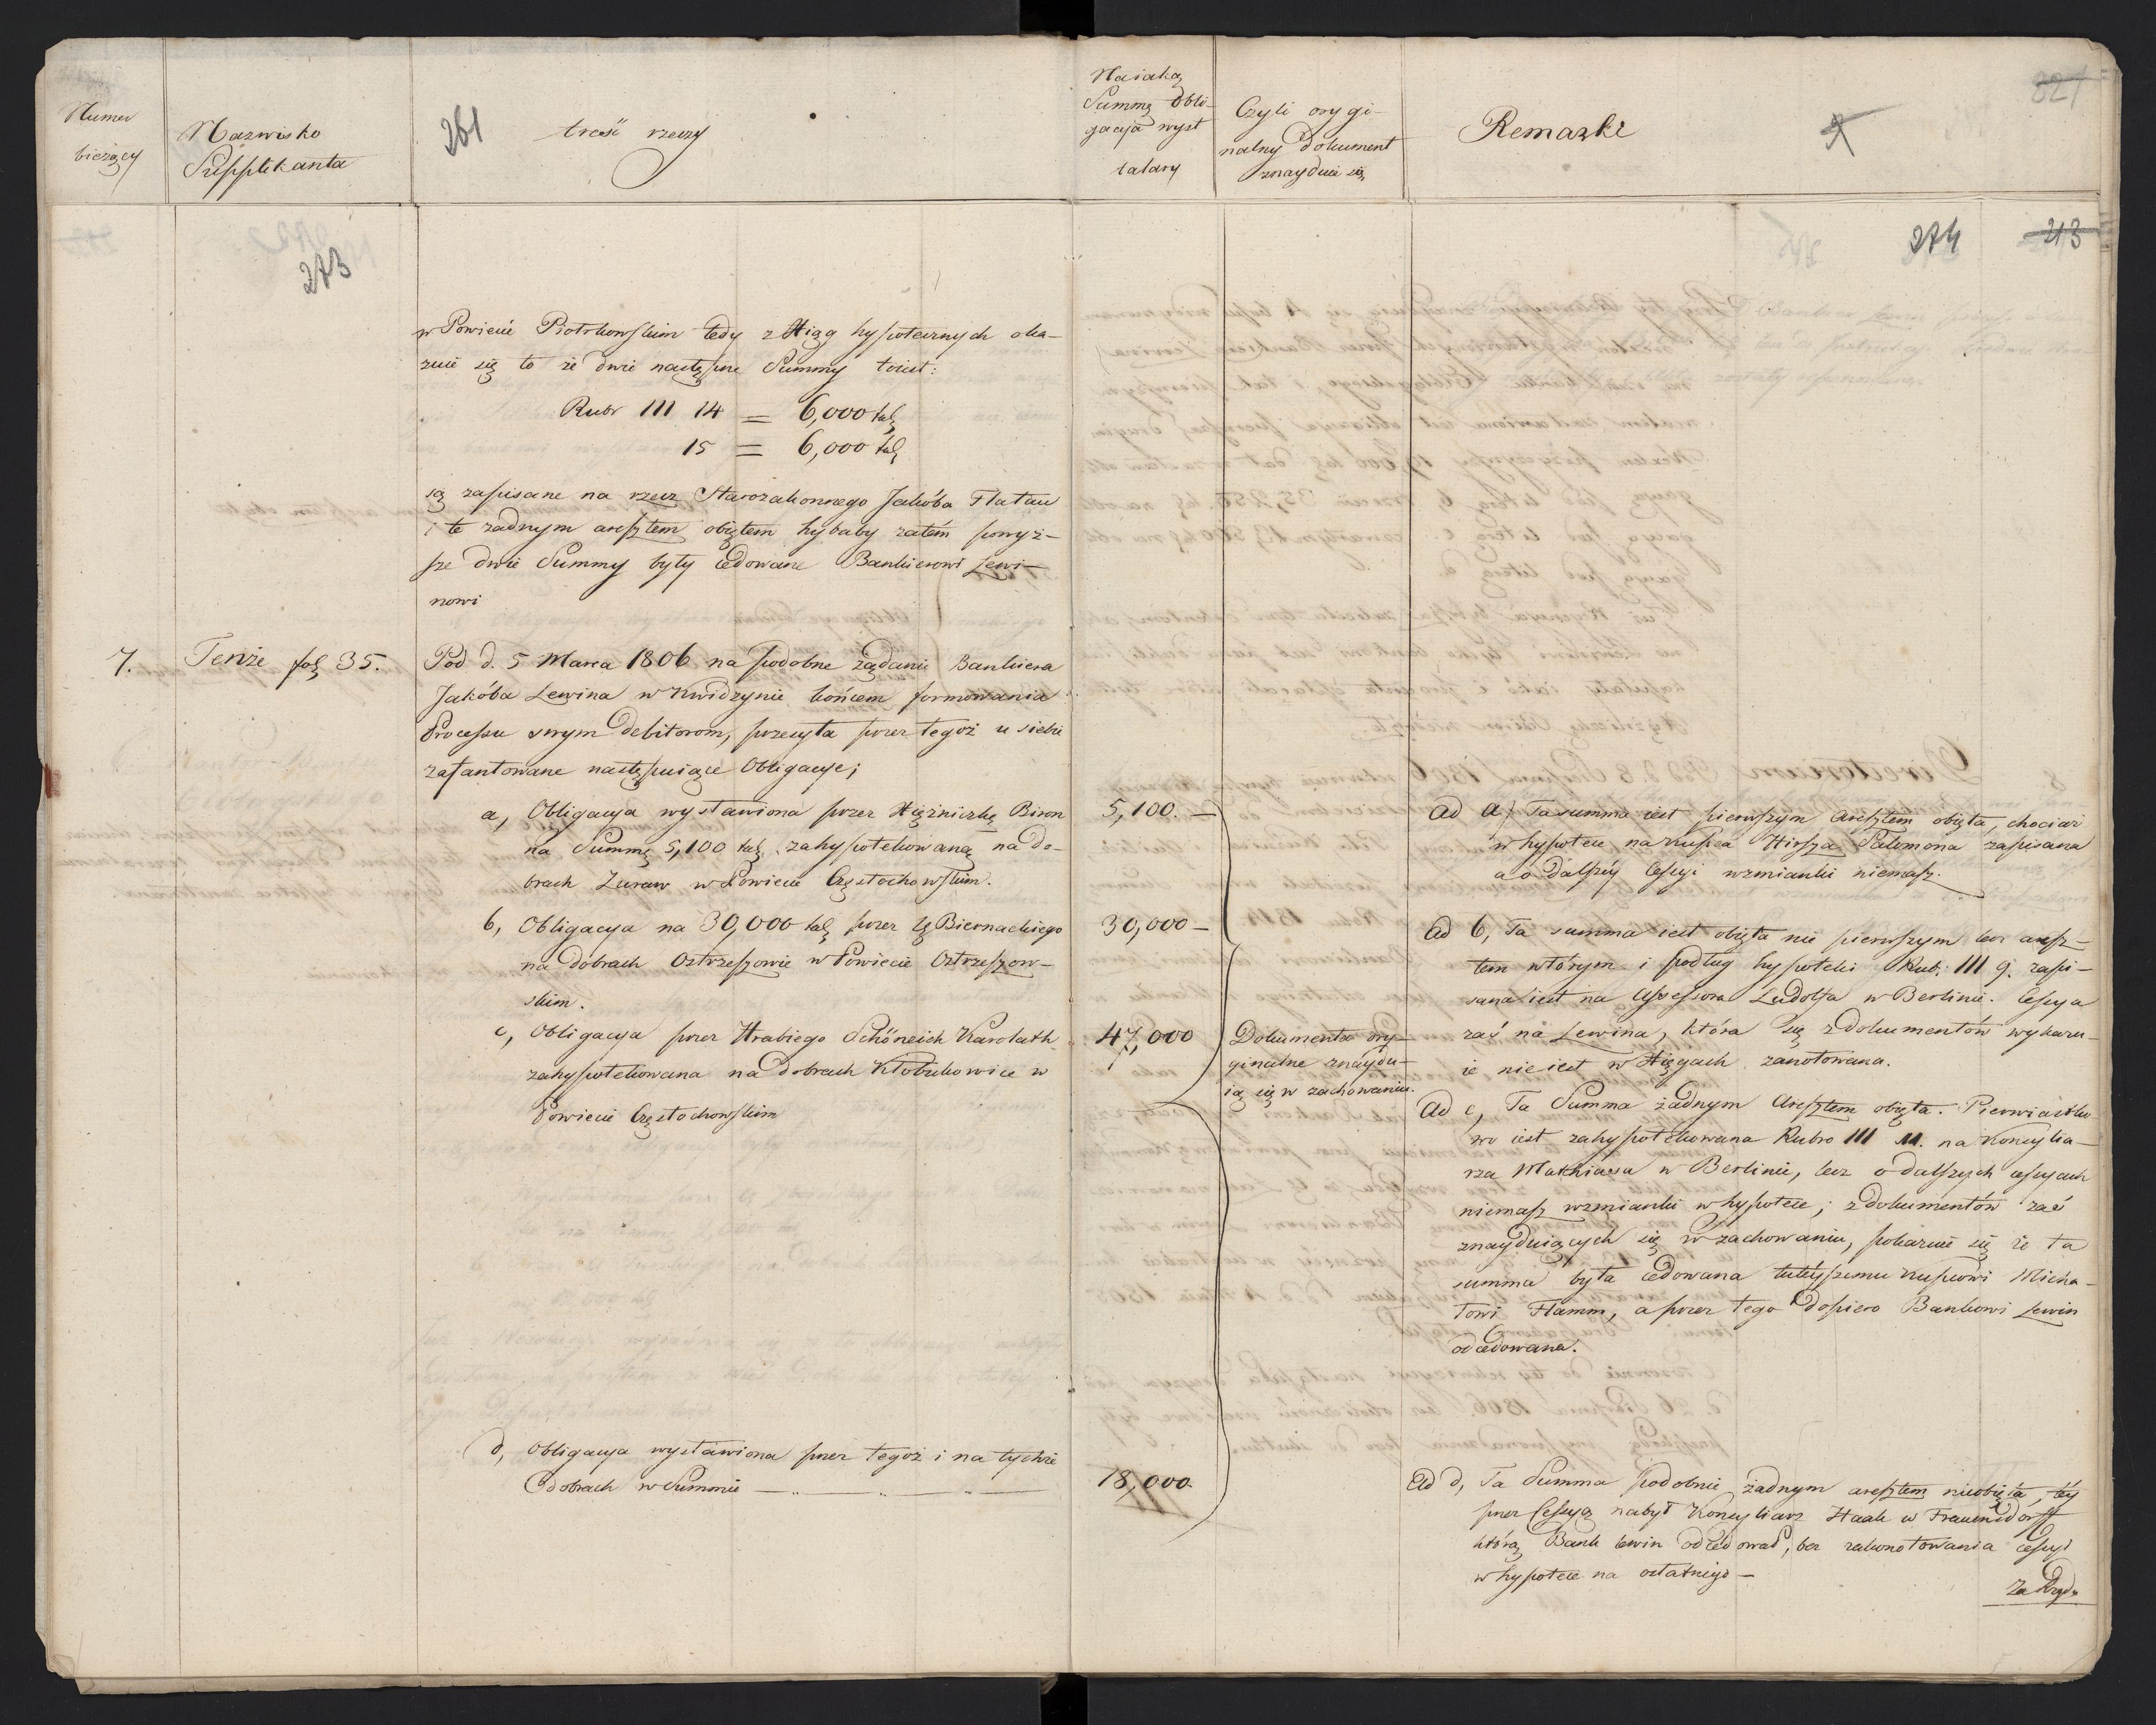 Numer
bieżący
Nazwisko
Supplikanta
261
treść rzeczy
Na iaką
Summę Obli-
gacya wyst
talary
Czyli orygi-
nalny Dokument
znayduie się
Remarki
321
273
274
213
w Powiecie Piotrkowskim tedy z Xiąg hypotecznych oka-
zuie się to że dwie następne Summy toiest:
Rubr III 14 = 6,000 tal
15 = 6,000 tal
są zapisane na rzecz Starozakonnego Jakóba Flatau
i te żadnym aresztem obiętem hybaby zatém powyż-
sze dwie Summy były cedowane Bankierowi Lewi-
nowi
7.
Tenże fol 35.
Pod d. 5 Marca 1806 na podobne żądanie Bankiera
Jakóba Lewina w Kwidzynie końcem formowania
Processu swym Debitorom, przecyta przez tegoż u siebie
zafantowane następuiące Obligacye;
a, Obligacya wystawiona przez Xiężniczkę Biron
na Summę 5,100 tal. zahypotekowaną na do-
brach Zuraw w Powiecie Częstochowskim.
b, Obligacya na 30,000 tal przez Biernackiego
na dobrach Ostrzeszowie w Powiecie Ostrzeszow-
skim.
c, Obligacya przez Hrabiego Schöneich Karolath
zahypotekowana na dobrach Kłobukowice w
Powiecie Częstochowskim
d, Obligacya wystawiona przez tegoż i na tychże
dobrach w Summie — „ — „ —
5,100. —
30,000 —
47,000
18,000.
Dokumenta ory-
ginalne znaydu-
ią się w zachowaniu.
Ad a, Ta summa iest pierwszym Aresztem obięta, chociaż
w hypotece na Kupca Hirsza Salomona zapisana
a o dalszéy Cessyi wzmianki niemasz.
Ad b, Ta summa iest obięta nie pierwszym lecz aresz-
tem wtórym i podług hypoteki Rub: III 9. zapi-
sana iest na Assessora Ludolfa w Berlinie. Cessya
zaś na Lewina, która się z dokumentów wykazu-
ie nie iest w Xięgach zanotowana.
Ad c, Ta Summa żadnym Aresztem obięta. Pierwiastko
wo iest zahypotekowana Rubro III 11. na Koncylia-
rza Mathiasa w Berlinie, lecz o dalszych cessyach
niemasz wzmianki w hypotece; z dokumentów zaś
znayduiących się w zachowaniu, pokazuie się że ta
summa była cedowana tuteyszemu Kupcowi Micha-
łowi Flamm, a przez tego dopiero Bankowi Lewin
odcedowana.
Ad d, Ta Summa podobnie żadnym aresztem nieobięta, tey
przez Cessyą nabył Koncyliarz Haak w Frauendorff
którą Bank Lewin odcedował, bez zakonotowania Cessyi
w hypotece na ostatniego —